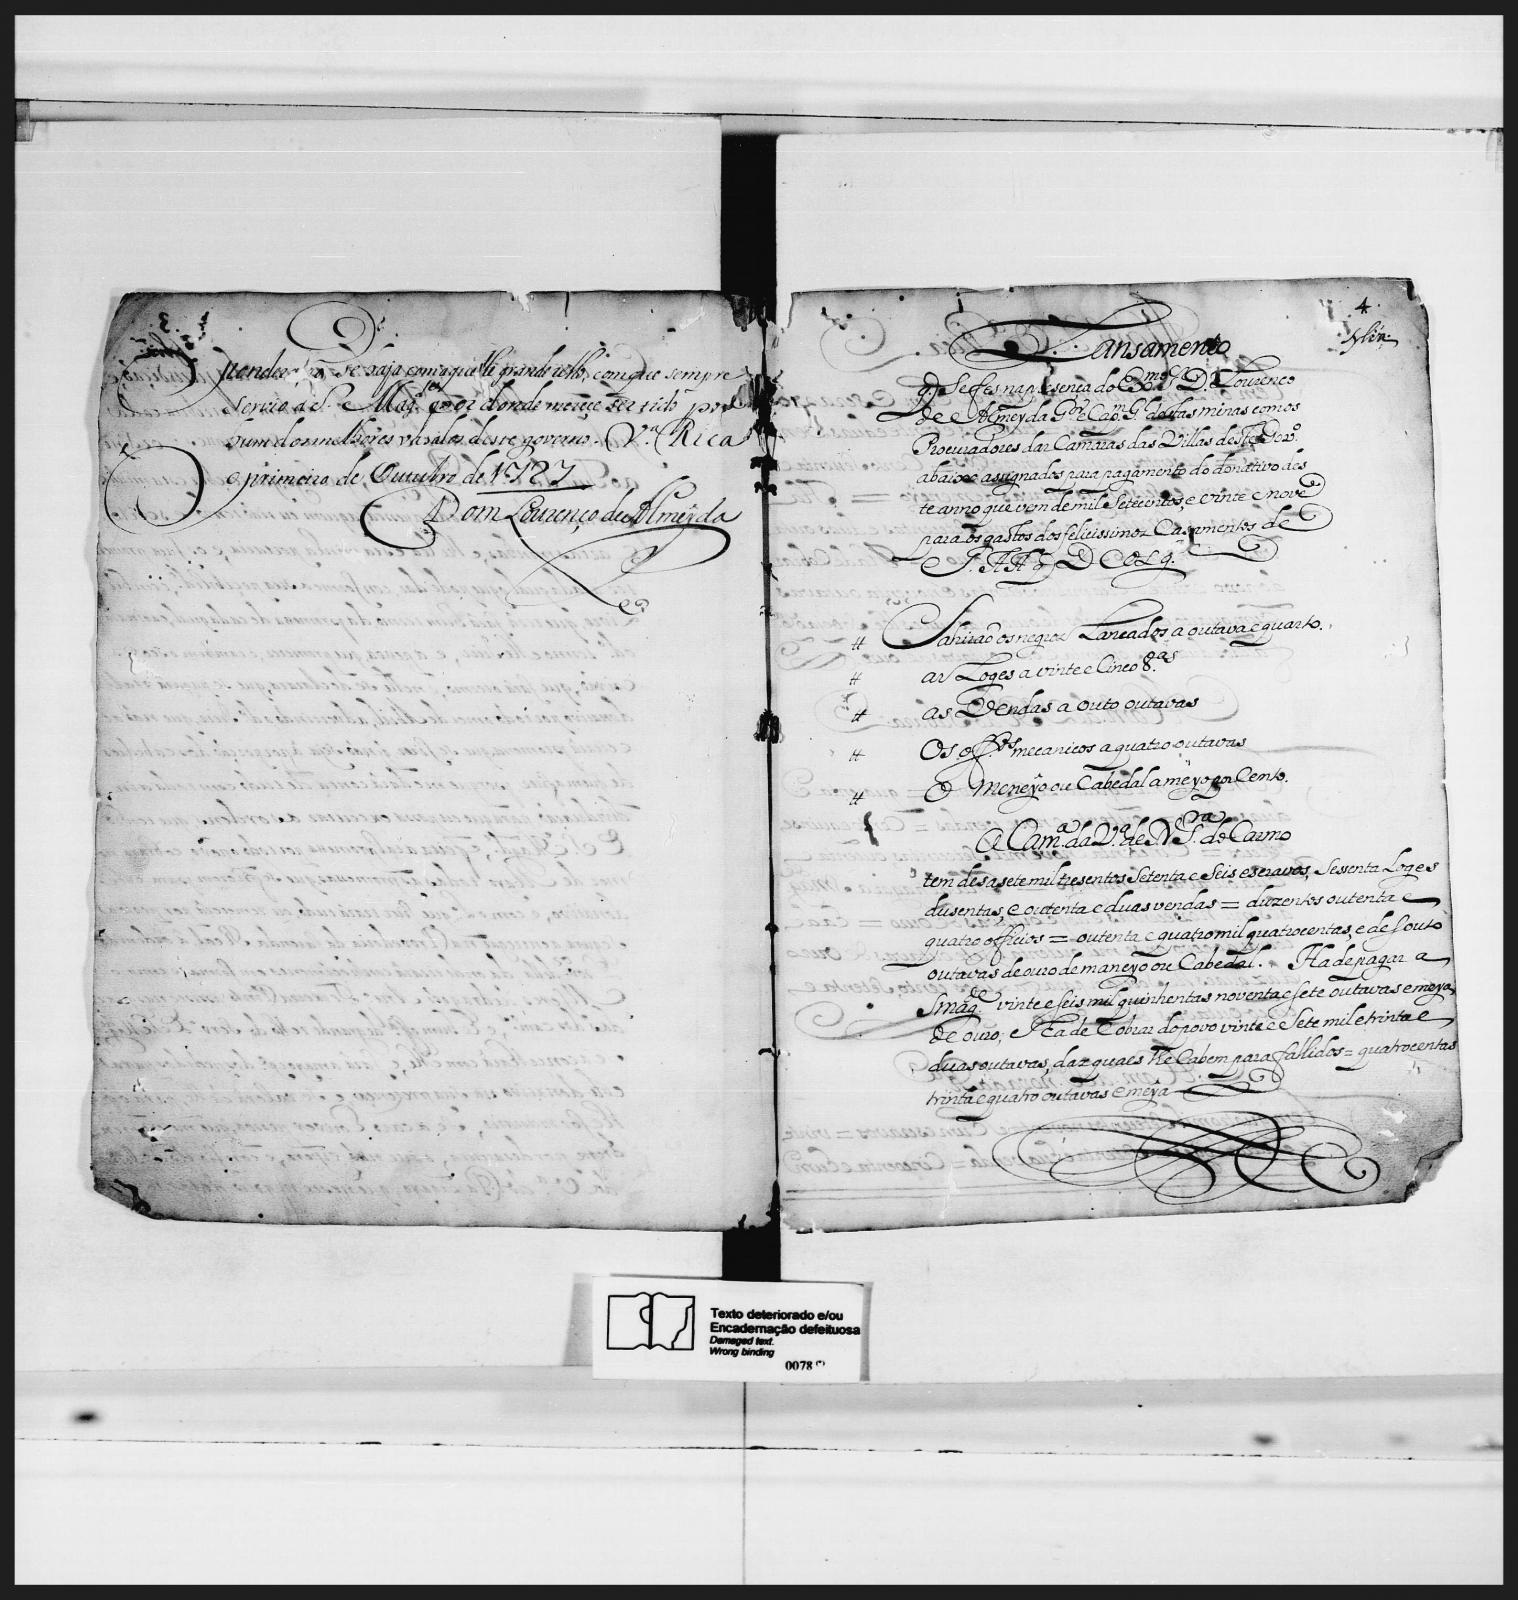 se haja com aquelle grande zello, com que sempre
servio a S. Mag.de por donde merece ser tido por
hum dos melhores vasalos deste governo. V.a Rica
o primeiro de Outubro de 1727
Dom Lourenço de Almeyda
4
Lansamento
q. Se fes na prezença do Ex.mo S.r D. Lourenco
de Almeyda G.or e Cap.m G.l destas minas com os
Procuradores das Camaras das Villas deste Gov.o
abaixo asignados para pagamento do donativo des
te anno que vem de mil Setecentos, e vinte e nove
para os gastos dos felicissimos Casamentos de
S. A A
# Sahiraõ os negros Lancados a outava e quarto.
# as Loges a vinte e Cinco 8.as
# as Vendas a outo outavas
# Os off.os mecanicos a quatro outavas
# O Meneyo ou Cabedal a meyo por Cento.
A Cam.a da V.a de N. S.ra do Carmo
tem desasete mil tresentos Setenta e Seis escravos, Sessenta Loges
dusentas, e outenta e duas vendas = duzentos outenta e
quatro officios = outenta e quatro mil quatrocentas, e desouto
outavas de ouro de maneyo ou Cabedal. Ha de pagar a
S mag.de vinte e seis mil quinhentas noventa e sete outavas e meya
de ouro, e Ha de Cobrar do povo vinte e Sete mil e trinta e
duas outavas, das quaes lhe Cabem para fallidos = quatrocentas
trinta e quatro outavas e meya
Texto deteriorado e/ou
Encadernação defeituosa
Damaged text.
Wrong binding
0078 (*)